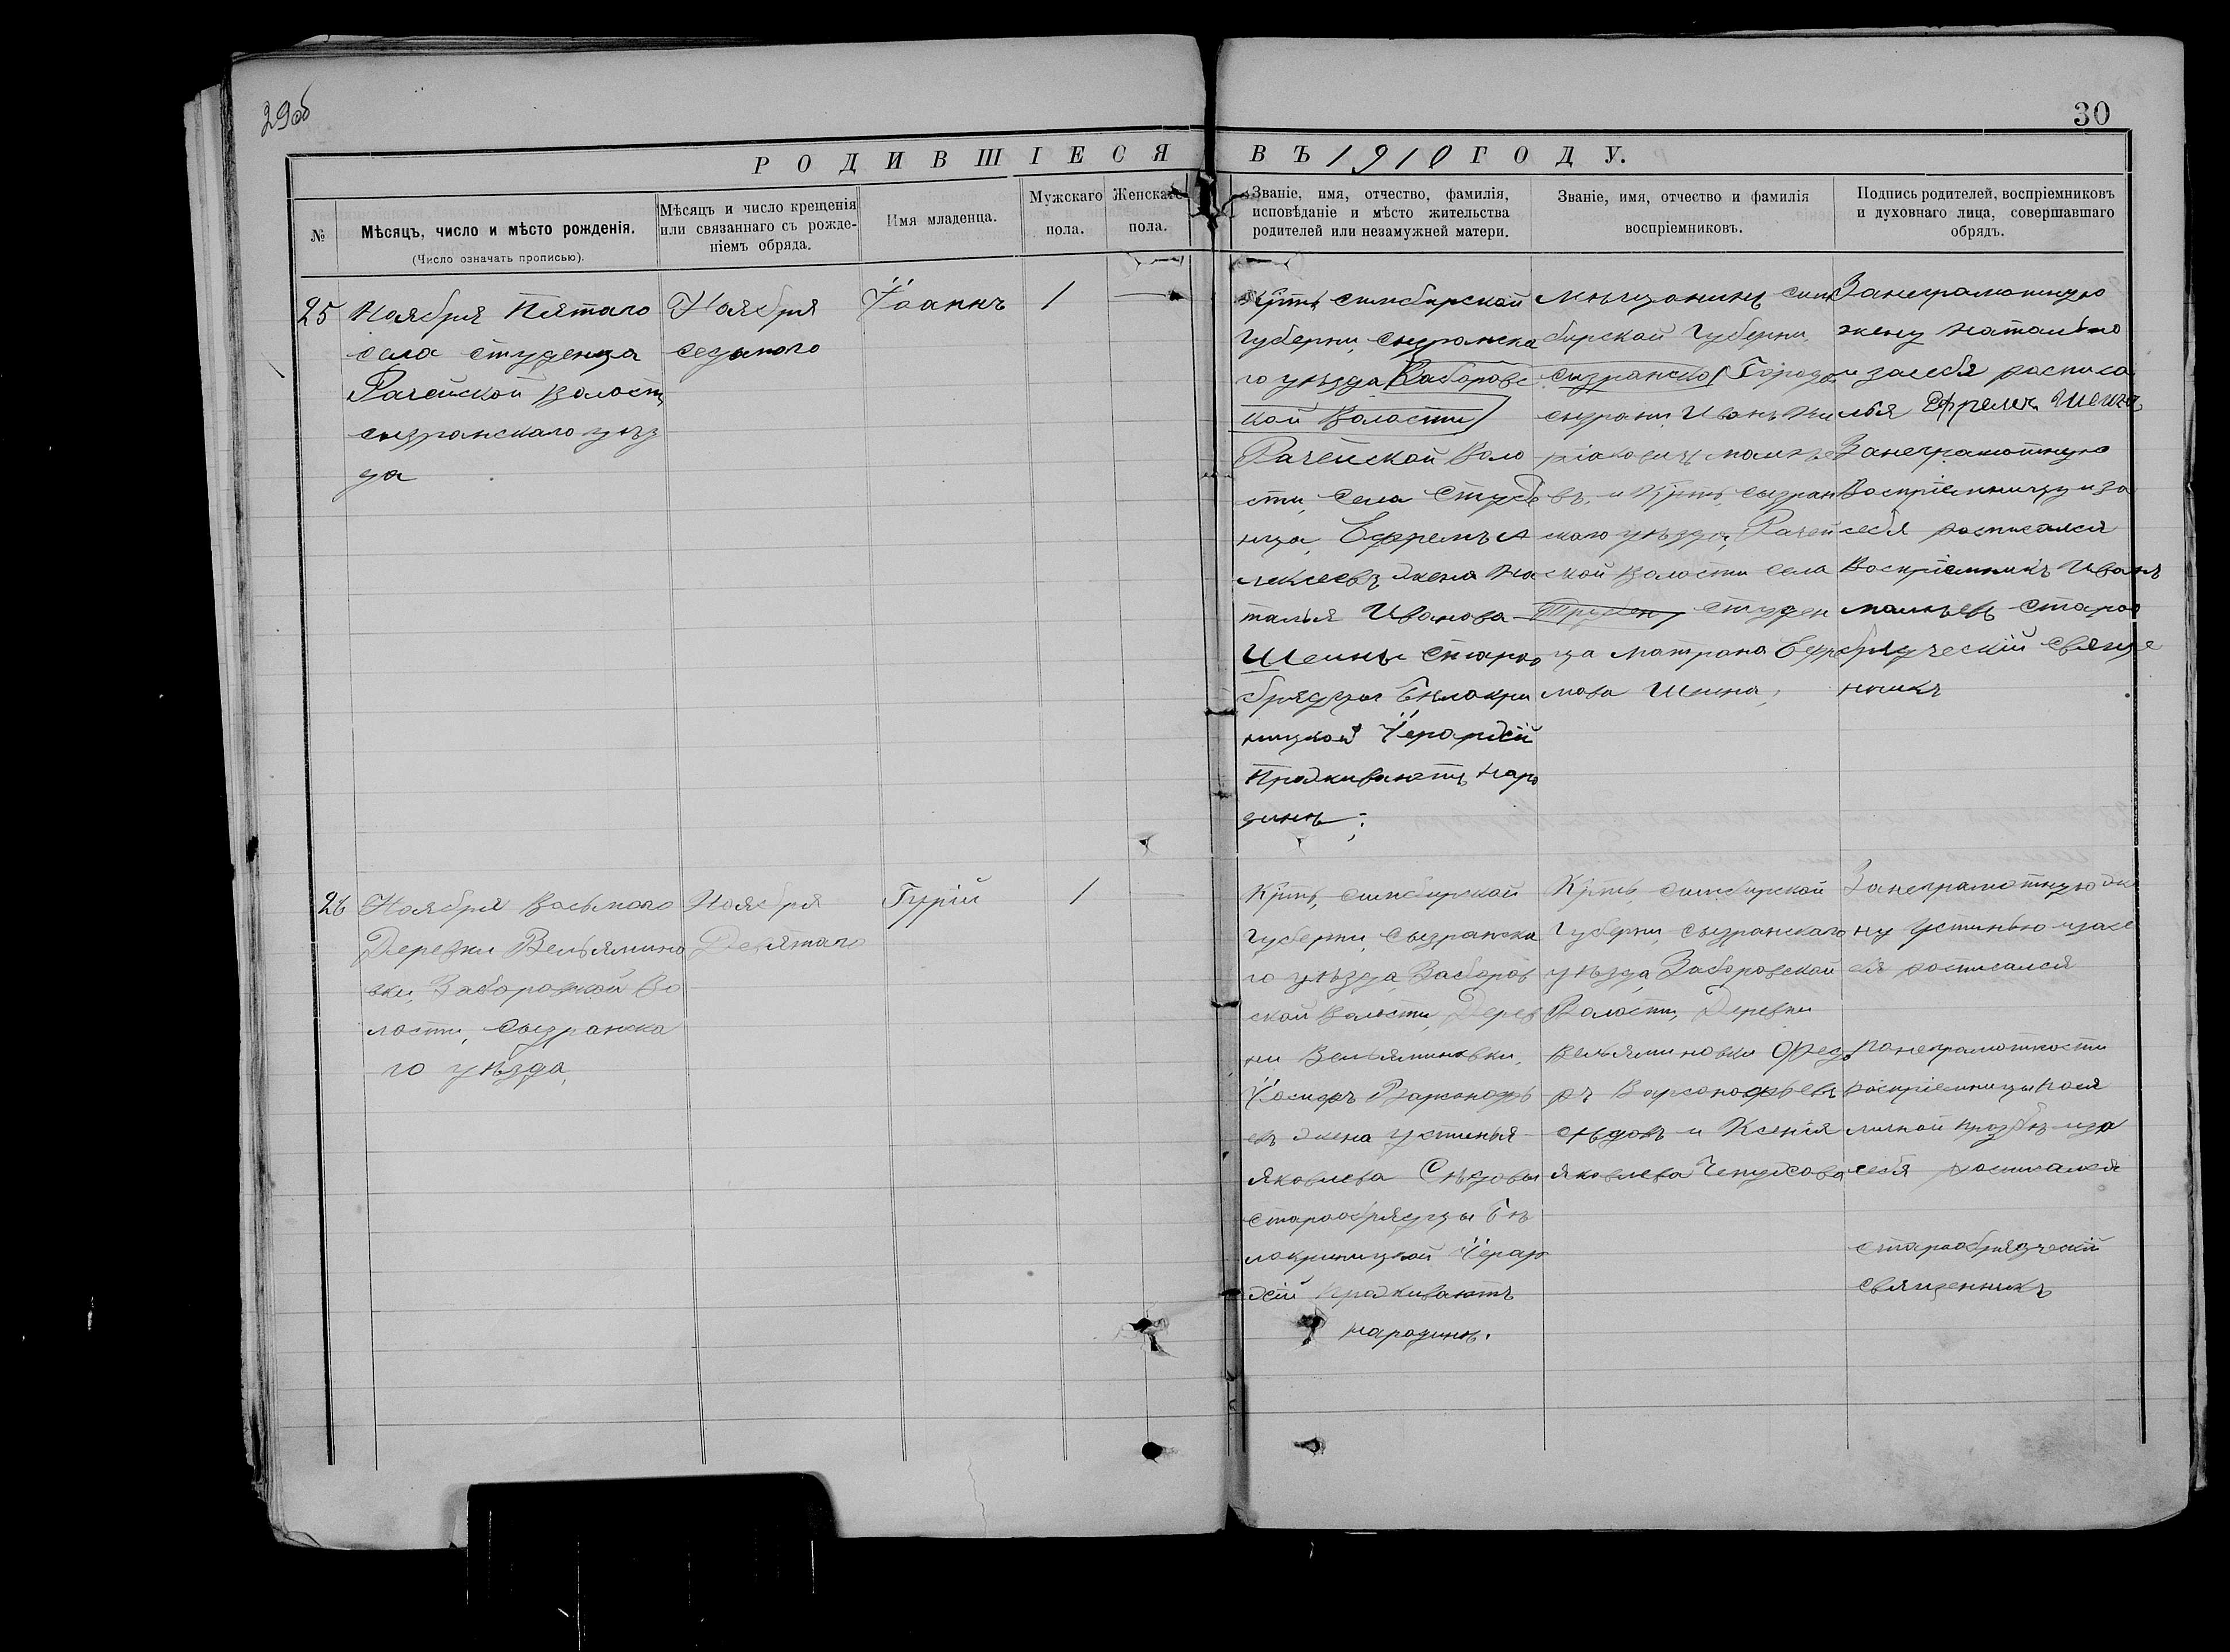 29об
30
РОДИВШІЕСЯ ВЪ 1910 ГОДУ.
№
Мѣсяцъ, число и мѣсто рожденія.
(Число означать прописью).
Мѣсяцъ и число крещенія
или связаннаго съ рожде-
ніемъ обряда.
Имя младенца.
Мужскаго
пола.
Женскаго
пола.
Званіе, имя, отчество, фамилія,
исповѣданіе и мѣсто жительства
родителей или незамужней матери.
Званіе, имя, отчество и фамилія
воспріемниковъ.
Подпись родителей, воспріемниковъ
и духовнаго лица, совершавшаго
обрядъ.
25
Ноября Пятаго
села студенца
Рачейской волости
сызранскаго уѣз
да
Ноября
седьмого
Іоаннъ
1
—
Крт҃ъ симбирской
Губерни, сызранска
го уѣзда Заборовс
кой Волости
Рачейской Воло
сти, Села Студе
нца, Ефремъ А
лексеевъ жена На
талья Иванова
Шеины старо
обрядцы Бѣлокри
ницкой Іерархіи
Проживаютъ наро
динѣ;
мѣщанинъ сим
бирской Губерни,
сызранско Города
сызрани, Иванъ
въ, и Крт҃ъ, сызран
скаго уѣзда, Рачей
ской волости села
студен
ца Матрона Ефре
мова Шеина,
За неграмотную
жену наталью
и засебя расписа
лся Ефремъ Шеинъ
За неграмотную
Воспріемницу и за
себя росписался
Воспріемникъ Иванъ
старо
обрядческій Свяще
нникъ
26
Ноября Восьмого
Деревни Вельямино
вки, Заборовской Во
лости, Сызранска
го уѣзда,
Ноября
Девятаго
Гурій
1
—
Крт҃ъ, симбирской
Губерни, сызранска
го уѣзда, Заборов
ской Волости, Дерев
ни Вельяминовки,
Іосифъ Варсонофь
евъ жена устинья
Яковлева Сѣдовы
старообрядцы Бѣ
локриницкой Іерар
хіи Проживаютъ
народинѣ.
Крт҃ъ, симбирской
Губерни, сызранскаго
уѣзда, Заборовской
Волости, Деревни
Вельяминовки Федо
ръ Варсонофьевъ
сѣдовъ и Ксенія
Яковлева
За неграмотную же
ну устинью изасе
бя росписался
Понеграмотности
воспріемницы поея
личной прозбѣ иза
себя росписался
старообрядческій
священникъ